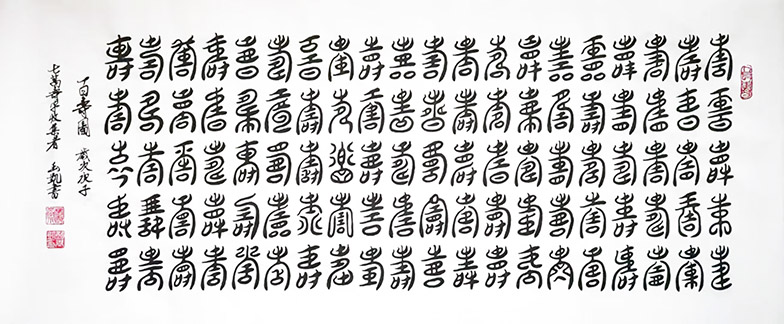 壽壽壽壽壽
壽壽壽壽壽
壽壽壽壽壽
壽壽壽壽壽
壽壽壽壽壽
壽壽壽壽壽
壽壽壽壽壽
壽壽壽壽壽
壽壽壽壽壽
壽壽壽壽壽
壽壽壽壽壽
壽壽壽壽壽
壽壽壽壽壽
壽壽壽壽壽
壽壽壽壽壽
壽壽壽壽壽
壽壽壽壽壽
壽壽壽壽壽
壽壽壽壽壽
壽壽壽壽壽
百壽圖 歲次戊子
七萬壽字收集者 書